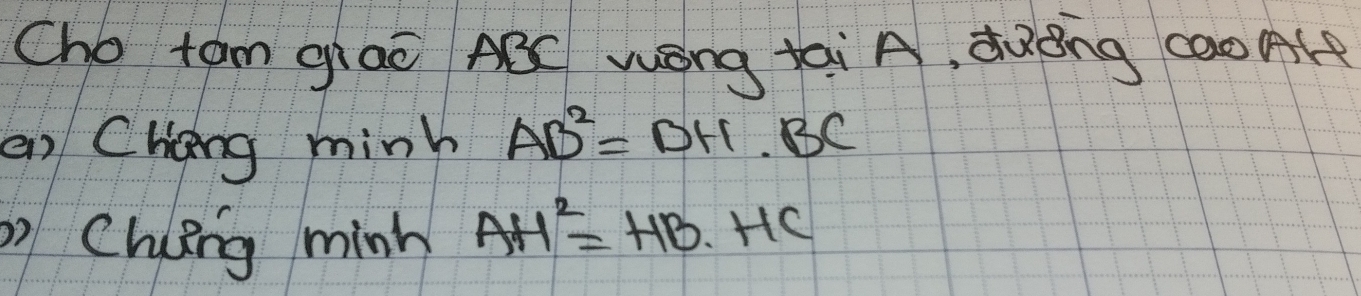 Cho tam giác ABC vuông tại A, đường cao AH
a) Chứng minh AB² = BH. BC
b) Chứng minh AH² = HB. HC